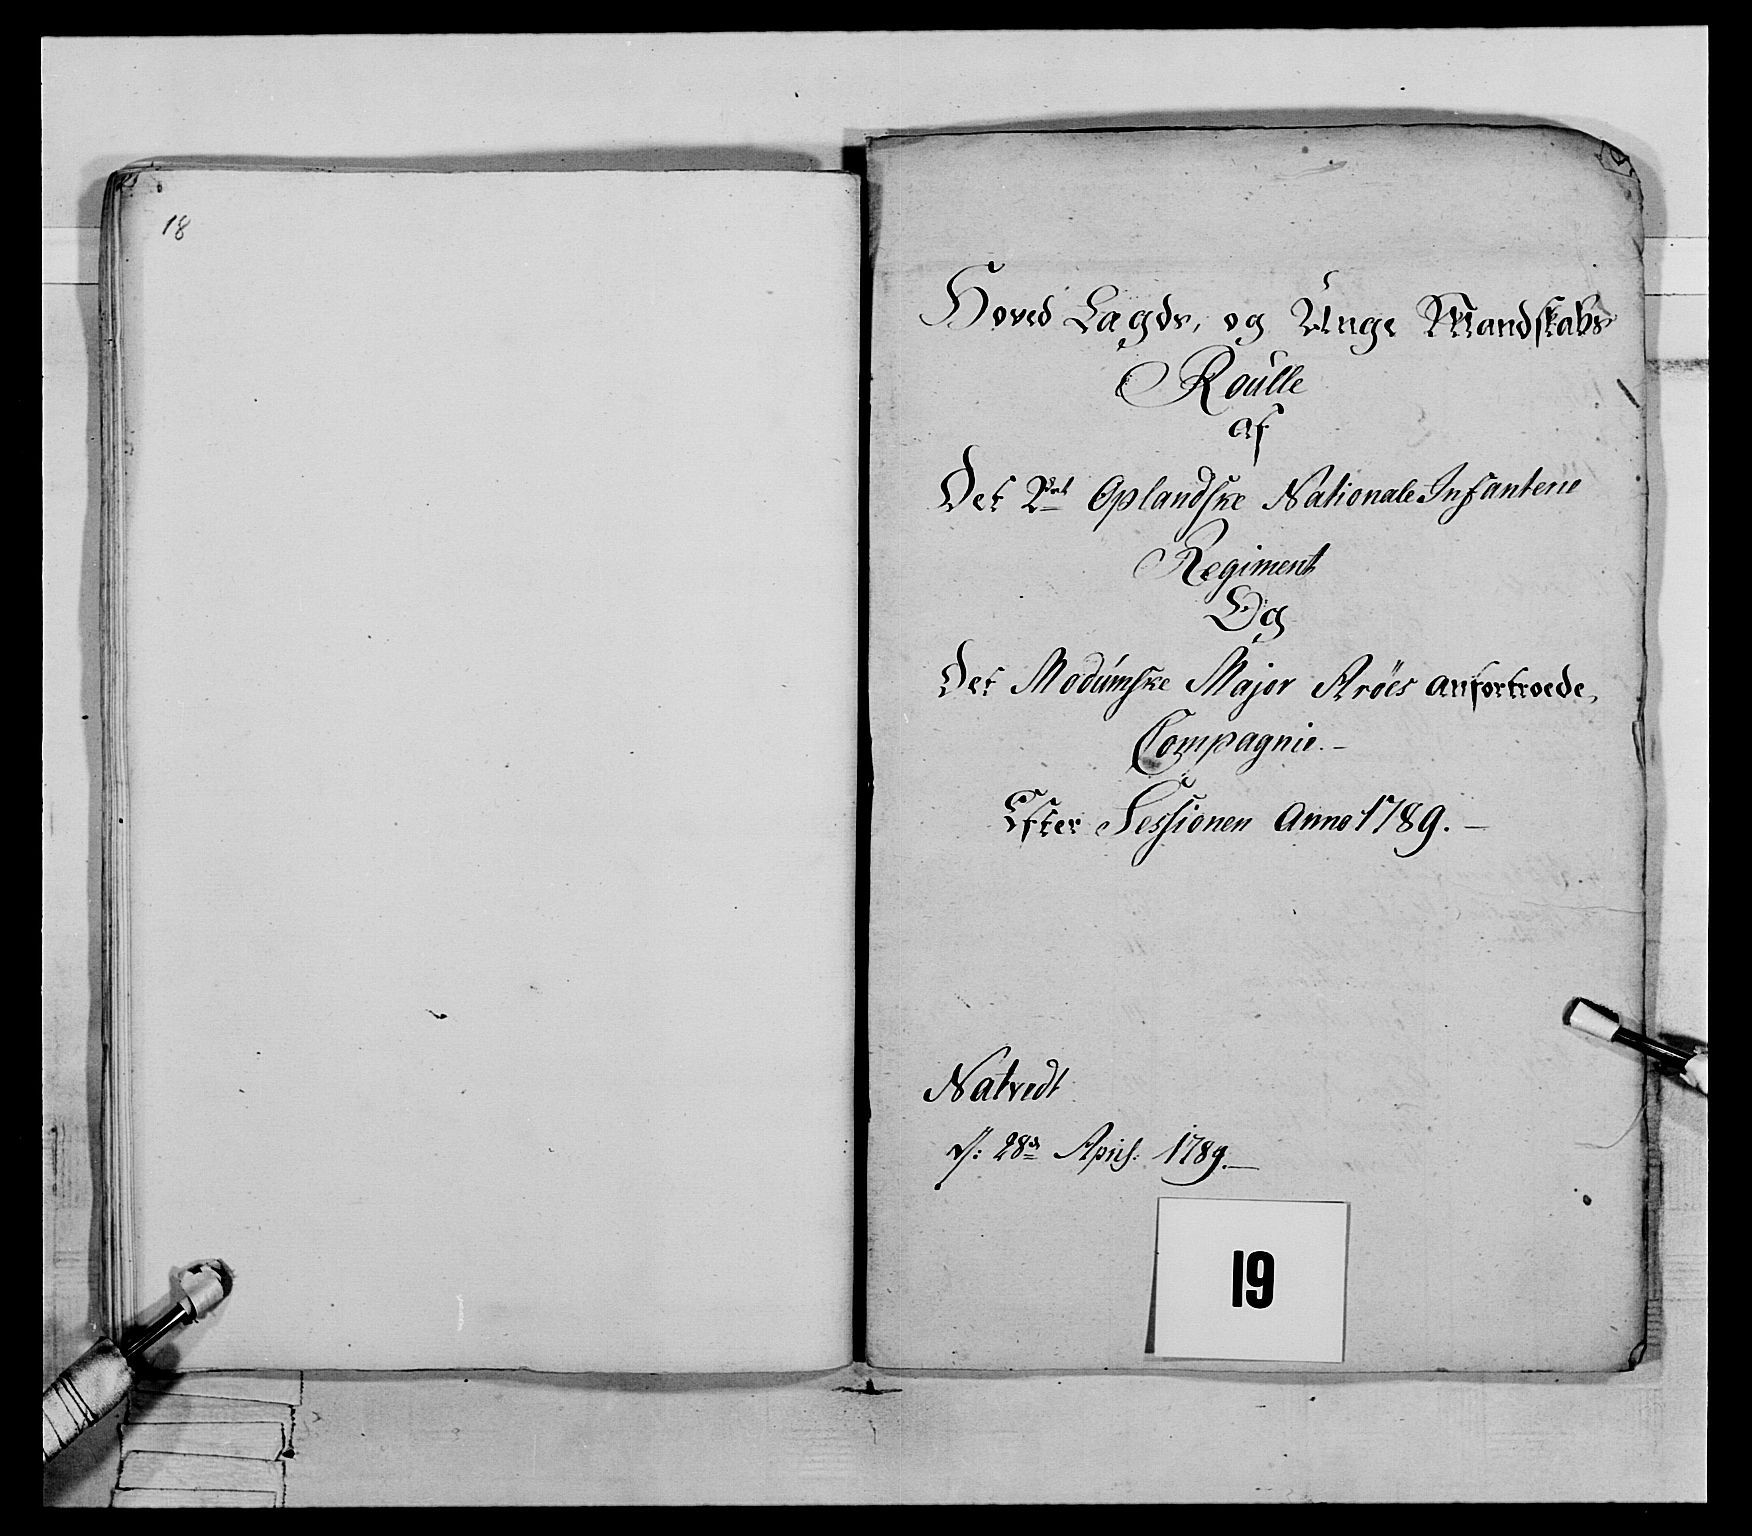 18
Hoved Lægds, og Unge Mandskabs
Roulle
af
Det 2det Oplandske Nationale Infanterie
Regiment
Og
Det Modumske Major Aröes anfortroede,
Compagnie.-
Efter Sessionen Anno 1789.-
Natvedt
d: 28de April: 1789.-
19